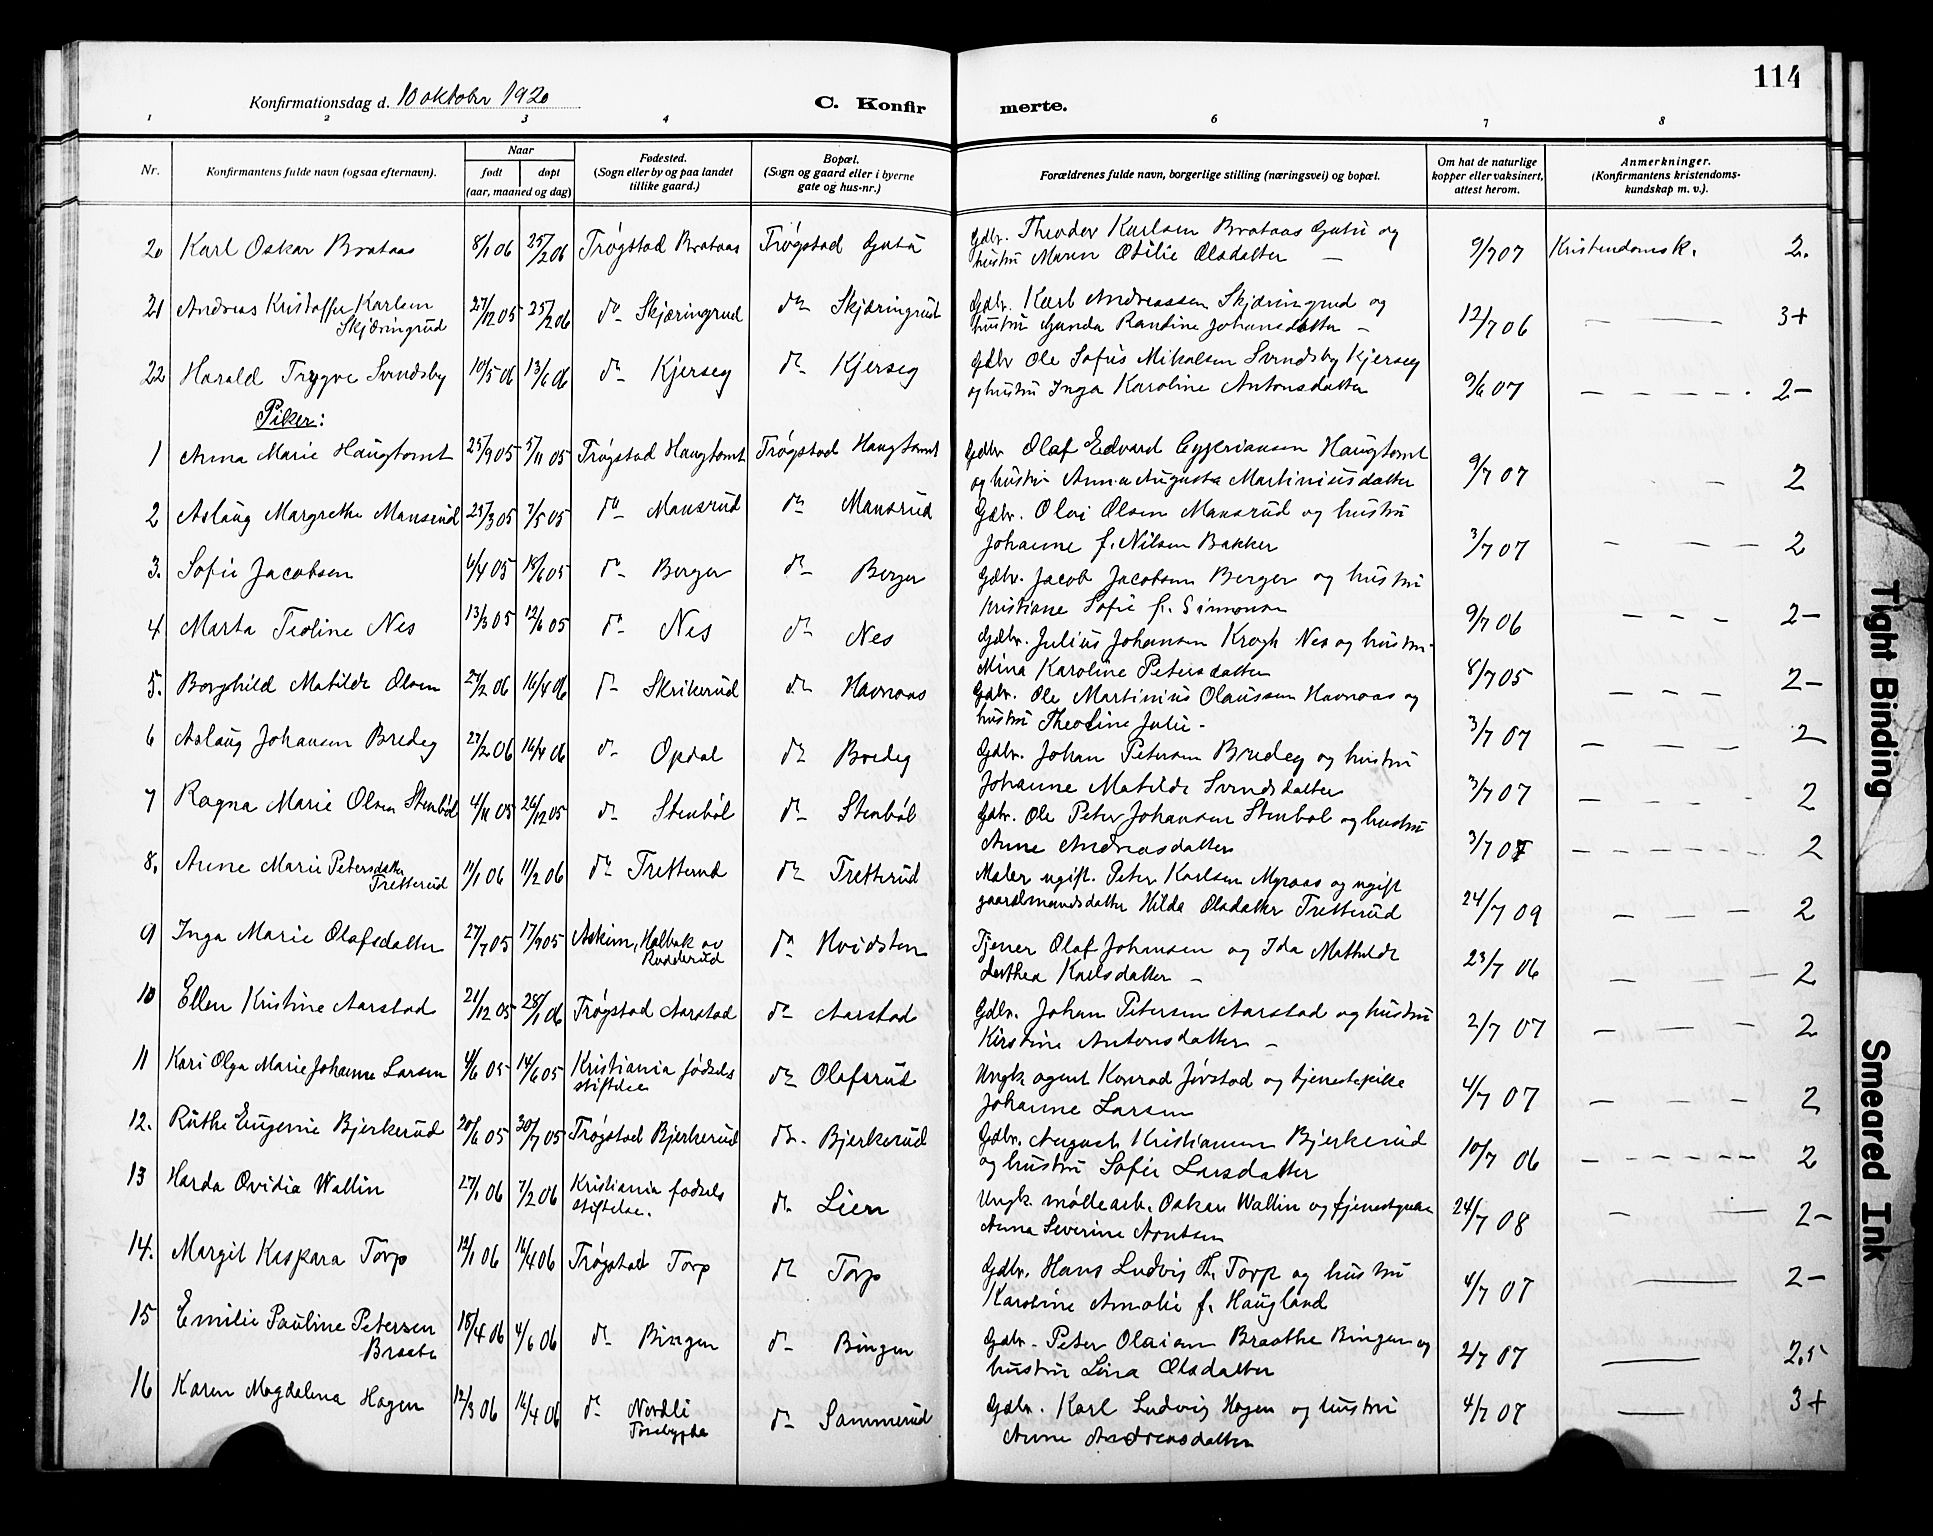 114
Konfirmationsdag d. 10 oktober 1920
C. Konfir merte.
1 2 3 4 6 7 8
Nr. Konfirmantens fulde navn (ogsaa efternavn). Naar født døpt (aar, maaned og dag) Fødested. (Sogn eller by og paa landet tillike gaard.) Bopæl. (Sogn og gaard eller i byerne gate og hus-nr.) Forældrenes fulde navn, borgerlige stilling (næringsvei) og bopæl. Om hat de naturlige kopper eller vaksinert, attest herom. Anmerkninger. (Konfirmantens kristendoms-kundskap m. v.).
20 Karl Oskar Brataas 8/1 06 25/2 06 Trøgstad Brataas Trøgstad Gutu Gdbr. Theodor Karlsen Brataas Gutu og
hustru Maren Otilie Olsdatter — 9/7 07 Kristendomsk. 2.
21 Andreas Kristoffer Karlsen
Skjæringrud 27/12 05 25/2 06 do Skjæringrud do Skjæringrud Gdbr. Karl Andreassen Skjæringrud og
hustru Gunda Randine Johansdatter — 12/7 06 — — 3+
22 Harald Trygve Svendsby 10/5 06 13/6 06 do Kjerseg do Kjerseg Gdbr Ole Sofus Mikalsen Svendsby Kjerseg
og hustru Inga Karoline Antonsdatter 9/6 07 — — — 2-
Piker:
1 Anna Marie Haugtomt 25/9 05 5/11 05 Trøgstad Haugtomt Trøgstad Haugtomt Gdbr Olaf Edvard Cypriansen Haugtomt
og hustru Anna Augusta Martiniusdatter 9/7 07 - - 2
2 Aslaug Margrethe Mansrud 25/3 05 7/5 05 do Mansrud do Mansrud Gdbr. Olai Olsen Mansrud og hustru
Johanne f. Nilsen Bakker 3/7 07 — — — 2
3. Sofie Jacobsen 4/4 05 18/6 05 do Berger do Berger Gdbr. Jacob Jacobsen Berger og hustru
Kristiane Sofie f. Simonsen 9/7 06 — — — 2-
4 Marta Teoline Nes 13/3 05 12/6 05 do Nes do Nes Gdbr. Julius Johansen Krogh Nes og hustru
Mina Karoline Petersdatter 8/7 05 — — — 2-
5. Borghild Matilde Olsen 27/2 06 16/4 06 do Skrikerud do Havnaas Gdbr. Ole Martinius Olaussen Havnaas og
hustru Theoline Julie - 3/7 07 — — — 2
6 Aslaug Johansen Bredeg 27/2 06 16/4 06 do Opdal do Bredeg Gdbr. Johan Petersen Bredeg og hustru
Johanne Matilde Svendsdatter 3/7 07 — — - 2
7 Ragna Marie Olsen Stenbøl 4/11 05 26/12 05 do Stenbøl do Stenbøl Gdbr. Ole Peter Johansen Stenbøl og hustru
Anne Andreasdatter 3/7 07 — — — — 2
8. Anne Marie Petersdatter
Tretterud 11/1 06 11/2 06 do Tretterud do Tretterud Maler ugift. Peter Karlsen Myraas og ugift
gaardmandsdatter Hilda Olsdatter Tretterud 24/7 09 — — — 2
9 Inga Marie Olafsdatter 27/7 05 17/9 05 Askim, Holbæk av
Rudderud do Hvidsten Tjener Olaf Johansen og Ida Mathilde
Karlsdatter — 23/7 06 — — — 2
10 Ellen Kristine Aarstad 21/12 05 28/1 06 Trøgstad Aarstad do Aarstad Gdbr. Johan Petersen Aarstad og hustru
Kirstine Antonsdatter — 2/7 07 — — — 2
11 Kari Olga Marie Johanne Larsen 4/6 05 14/6 05 Kristiania fødsels
stiftelse do Olafsrud Ungk. agent Konrad Jørstad og tjenestepike
Johanne Larsen 4/7 07 — — — 2
12. Ruthe Eugenie Bjerkerud 20/6 05 30/7 05 Trøgstad Bjerkerud do Bjerkerud Gdbr. August Kristiansen Bjerkerud
og hustru Sofie Larsdatter 10/7 06 — — — — 2
13 Harda Ovidia Wallin 27/1 06 7/2 06 Kristiania fødsels
stiftelse. do Lien Ungk. møllearb. Oskar Wallin og tjenestepike
Anna Severine Arntsen 24/7 08 — — 2-
14. Margit Kaspara Torp 12/1 06 16/4 06 Trøgstad Torp do Torp Gdbr. Hans Ludvig Th. Torp og hustru
Karoline Amalie f. Haugland 4/7 07 — 2-
15 Emilie Pauline Petersen
Braate 18/4 06 4/6 06 do Bingen do Bingen Gdbr. Peter Olaisen Braathe Bingen og
hustru Lina Olsdatter 2/7 07 — 2,5
16 Karen Magdalena Hagen 12/3 06 16/4 06 do Nordli
do Sammerud Gdbr. Karl Ludvig Hagen og hustru
Anne Andreasdatter 4/7 07 — 3+
Tight Binding
Smeared Ink